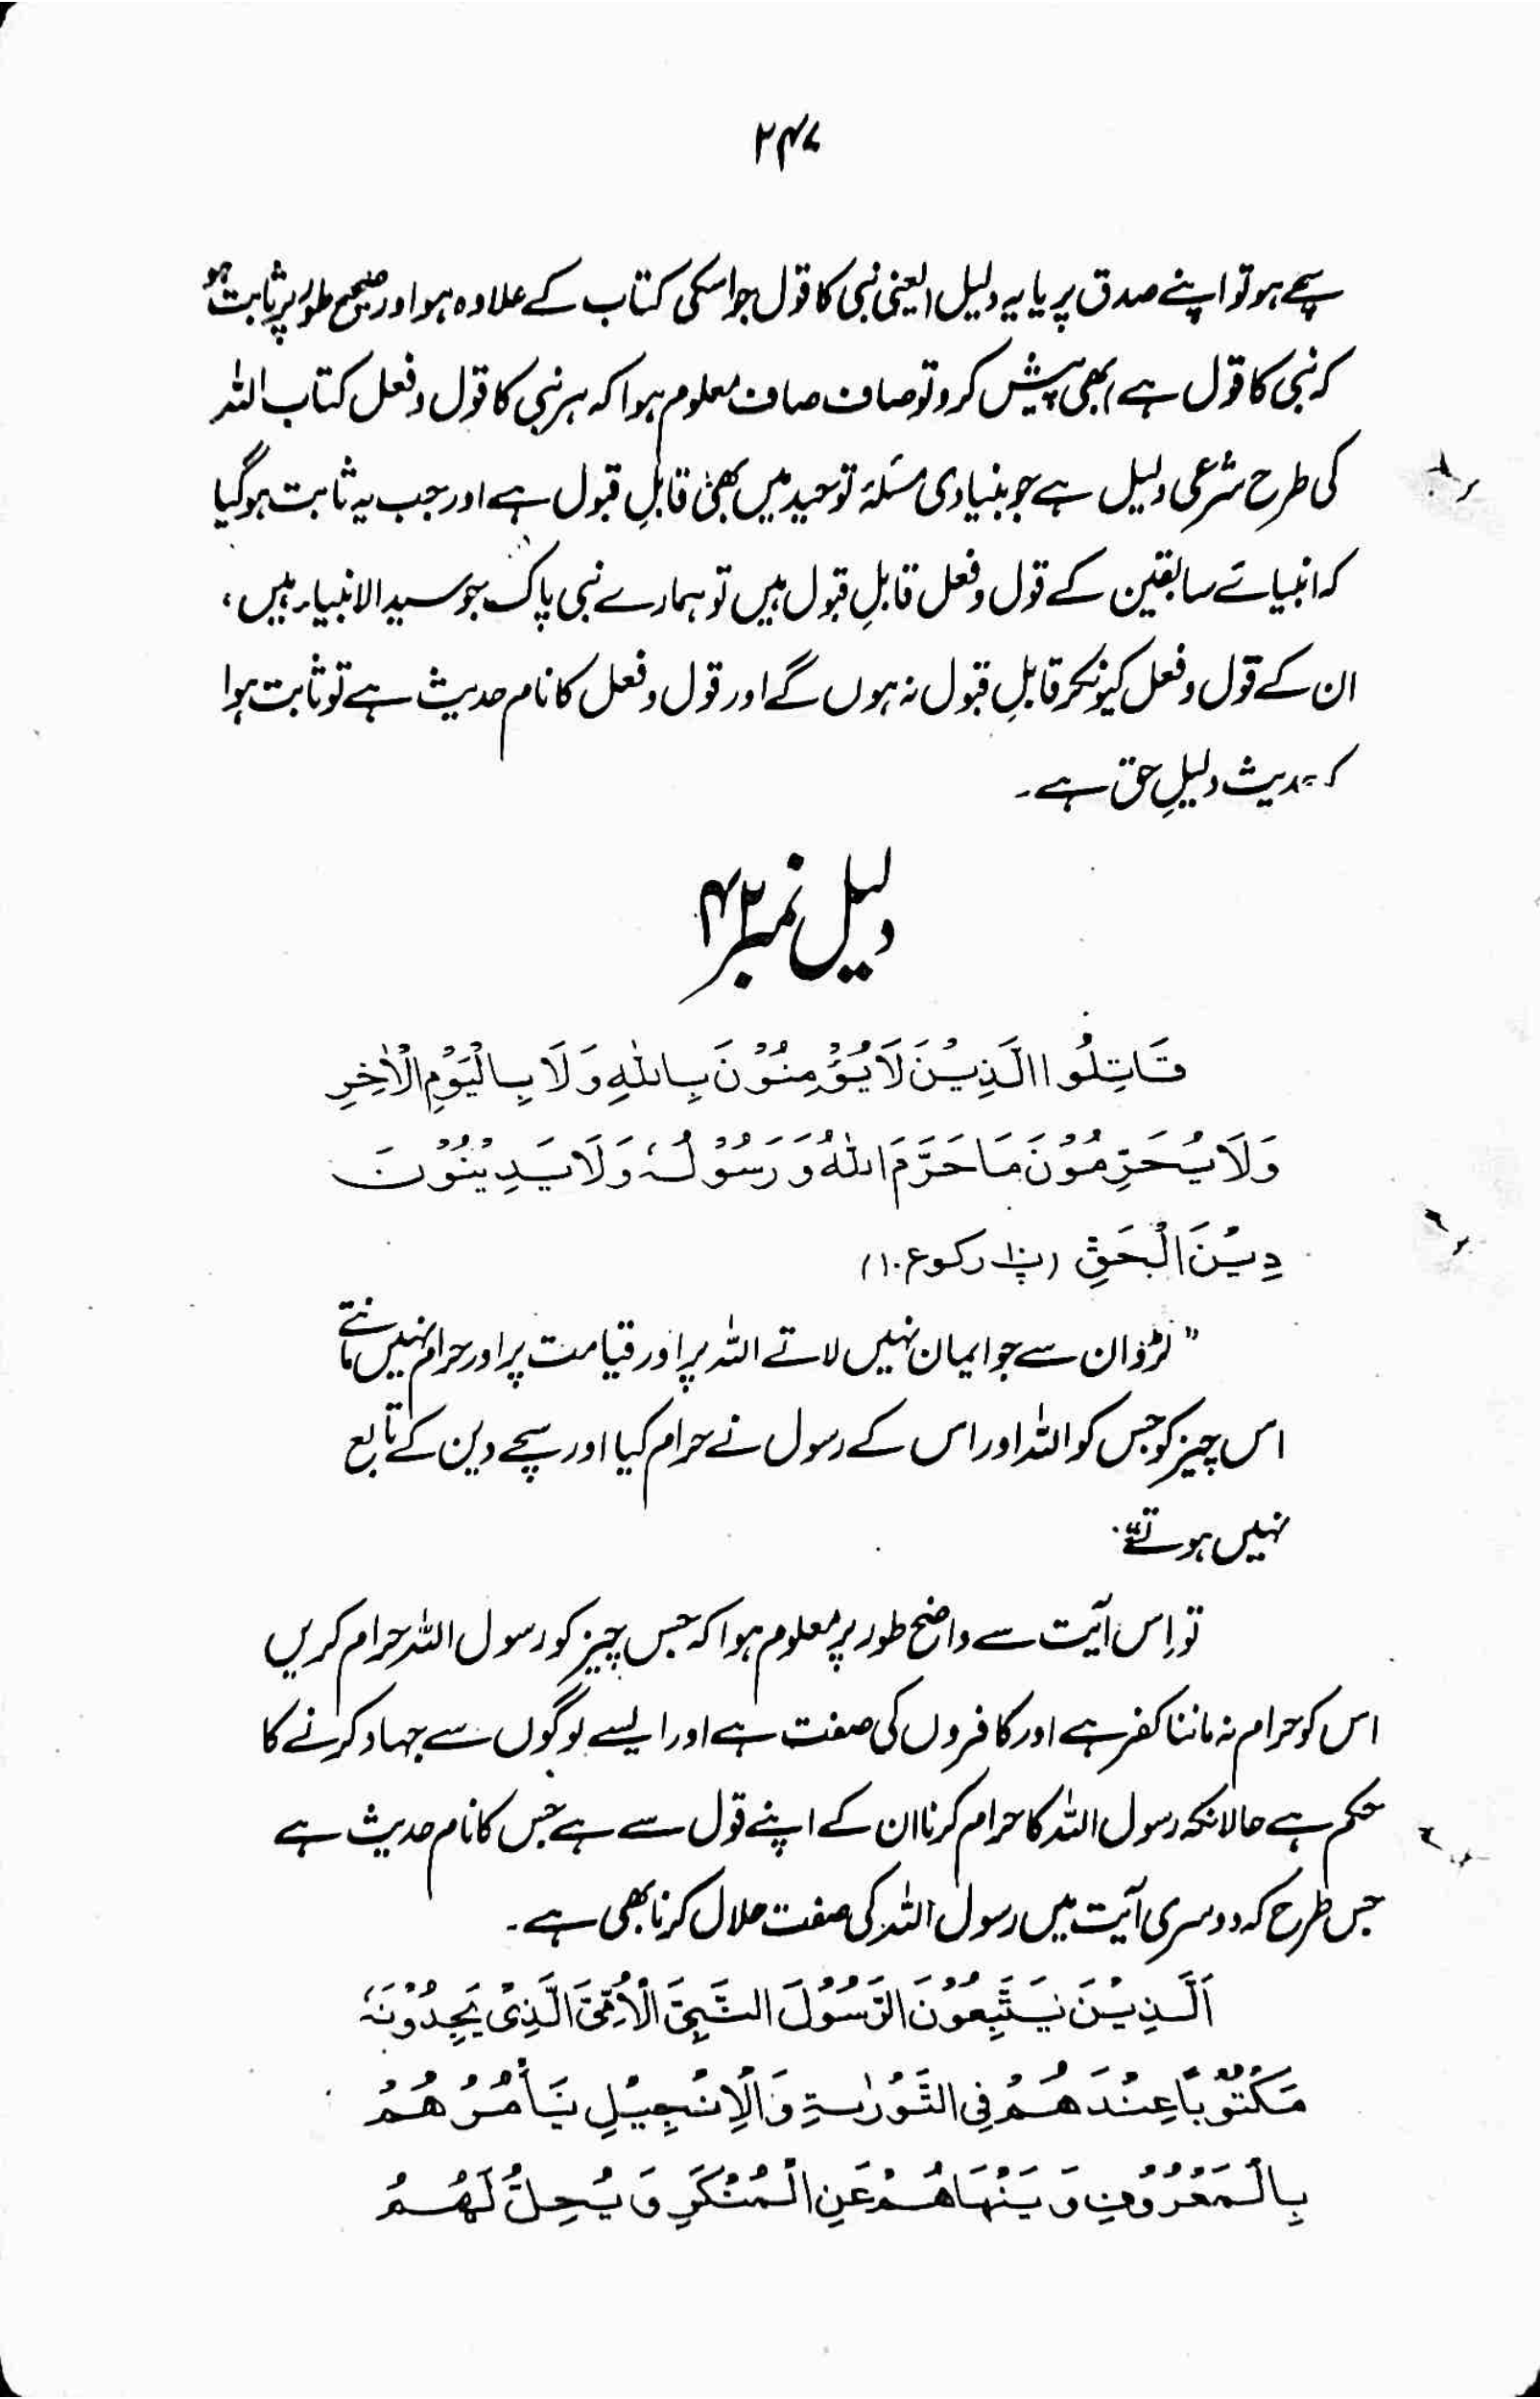 ۲۴۷
سچے ہو تو اپنے صدق پر یا یہ دلیل (یعنی نبی کا قول جو اسکی کتاب کے علاوہ ہو اور صحیح طور پر ثابت ہو
کہ نبی کا قول ہے) بھی پیش کرو تو صاف صاف معلوم ہوا کہ ہر نبی کا قول و فعل کتاب اللہ
کی طرح شرعی دلیل ہے جو بنیادی مسئلۂ توحید میں بھی قابلِ قبول ہے اور جب یہ ثابت ہو گیا
کہ انبیائے سابقین کے قول و فعل قابلِ قبول ہیں تو ہمارے نبی پاک جو سید الانبیاء ہیں،
ان کے قول و فعل کیونکر قابلِ قبول نہ ہوں گے اور قول و فعل کا نام حدیث ہے تو ثابت ہوا
کہ حدیث دلیلِ حق ہے۔
دلیل نمبر ۴۲
قَاتِلُوا الَّذِيْنَ لَا يُؤْمِنُوْنَ بِاللهِ وَلَا بِالْيَوْمِ الْاٰخِرِ
وَلَا يُحَرِّمُوْنَ مَا حَرَّمَ اللهُ وَرَسُوْلُهٗ وَلَا يَدِيْنُوْنَ
دِيْنَ الْحَقِّ (پ۱۰ رکوع ۱۰)
"لڑو ان سے جو ایمان نہیں لاتے اللہ پر اور قیامت پر اور حرام نہیں مانتے
اس چیز کو جس کو اللہ اور اس کے رسول نے حرام کیا اور سچے دین کے تابع
نہیں ہوتے"۔
تو اِس آیت سے واضح طور پر معلوم ہوا کہ جس چیز کو رسول اللہ حرام کریں
اس کو حرام نہ ماننا کفر ہے اور کافروں کی صفت ہے اور ایسے لوگوں سے جہاد کرنے کا
حکم ہے حالانکہ رسول اللہ کا حرام کرنا ان کے اپنے قول سے ہے جس کا نام حدیث ہے
جس طرح کہ دوسری آیت میں رسول اللہ کی صفت حلال کرنا بھی ہے۔
اَلَّذِيْنَ يَتَّبِعُوْنَ الرَّسُوْلَ النَّبِيَّ الْاُمِّيَّ الَّذِیْ يَجِدُوْنَهٗ
مَكْتُوْبًا عِنْدَهُمْ فِی التَّوْرٰىةِ وَالْاِنْجِيْلِ يَأْمُرُهُمْ
بِالْمَعْرُوْفِ وَيَنْهَاهُمْ عَنِ الْمُنْكَرِ وَيُحِلُّ لَهُمُ